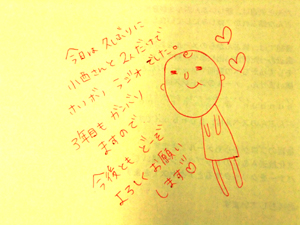 今日は久しぶりに
小西さんと2人だけで
ホリボリ ラジオ でした。
3年目も ガンバり
ますので
今後とも どーぞ
よろしく お願い
します♡